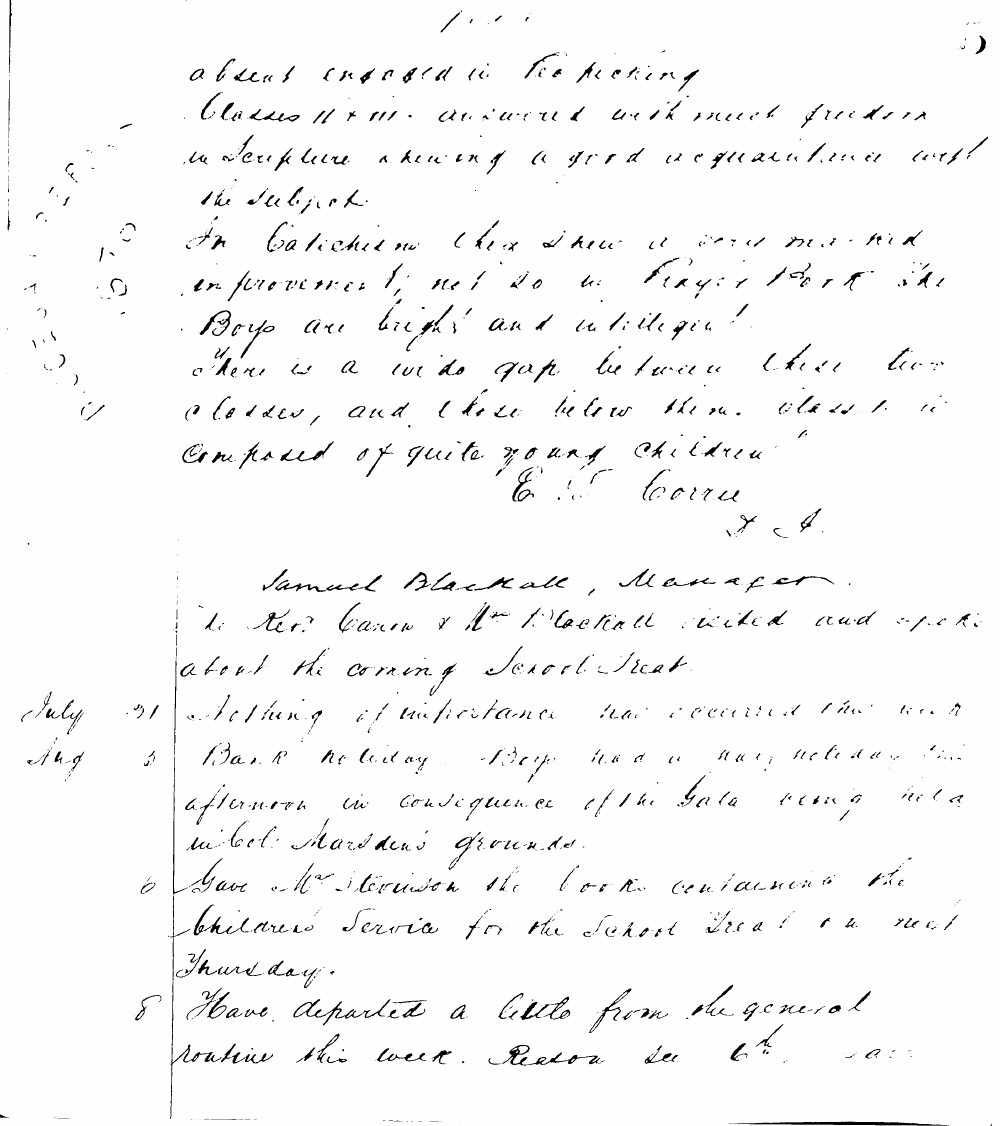 absent engaged in Pea picking
Classes II & III. answered with much freedom
in Scripture shewing a good acquaintance with
the subject.
In Catechism they shew a very marked
improvement, not so in Prayer Book The
Boys are bright and intelligent.
There is a wide gap between these two
classes, and those below them. Class I. is
composed of quite young children"
E Corrie
D. I.
Samuel Blackall, Manager.
Revd. Canon & Mrs Blackall visited and spoke
about the coming School Treat.
July 31 Nothing of importance has occurred this week
Aug 3 Bank holiday. Boys had a half holiday this
afternoon in consequence of the Gala being held
in Col: Marsden's grounds.
6 Gave Mr Stevinson the books containing the
Children's Service for the School Treat on next
Thursday.
8 Have departed a little from the general
routine this week. Reason see 6th.